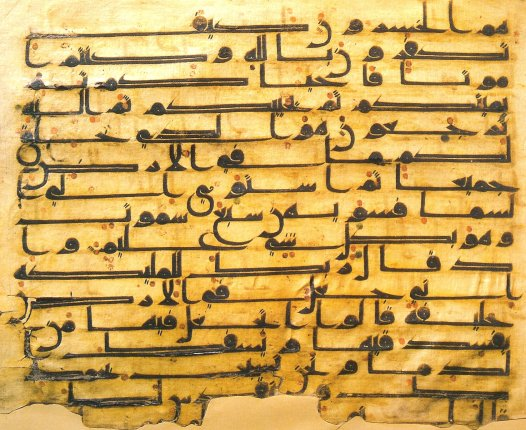 هم الخسرون كيف
تكفرون بالله وكنتم ا
موتا فاحياكم ثم
يميتكم ثم يحييكم ثم اليه
ترجعون هو الذي خلق
لكم ما في الارض
جميعا ثم استوى الى ا
لسما فسويهن سبع سموت
وهو بكل شي عليم وا
ذ قال ربك للمليكه
اني جاعل في الارض
خليفه قالوا اتجعل فيها من
يفسد فيها ويسفك ا
لدما ونحن نسبح بحمد
ك ونقدس لك